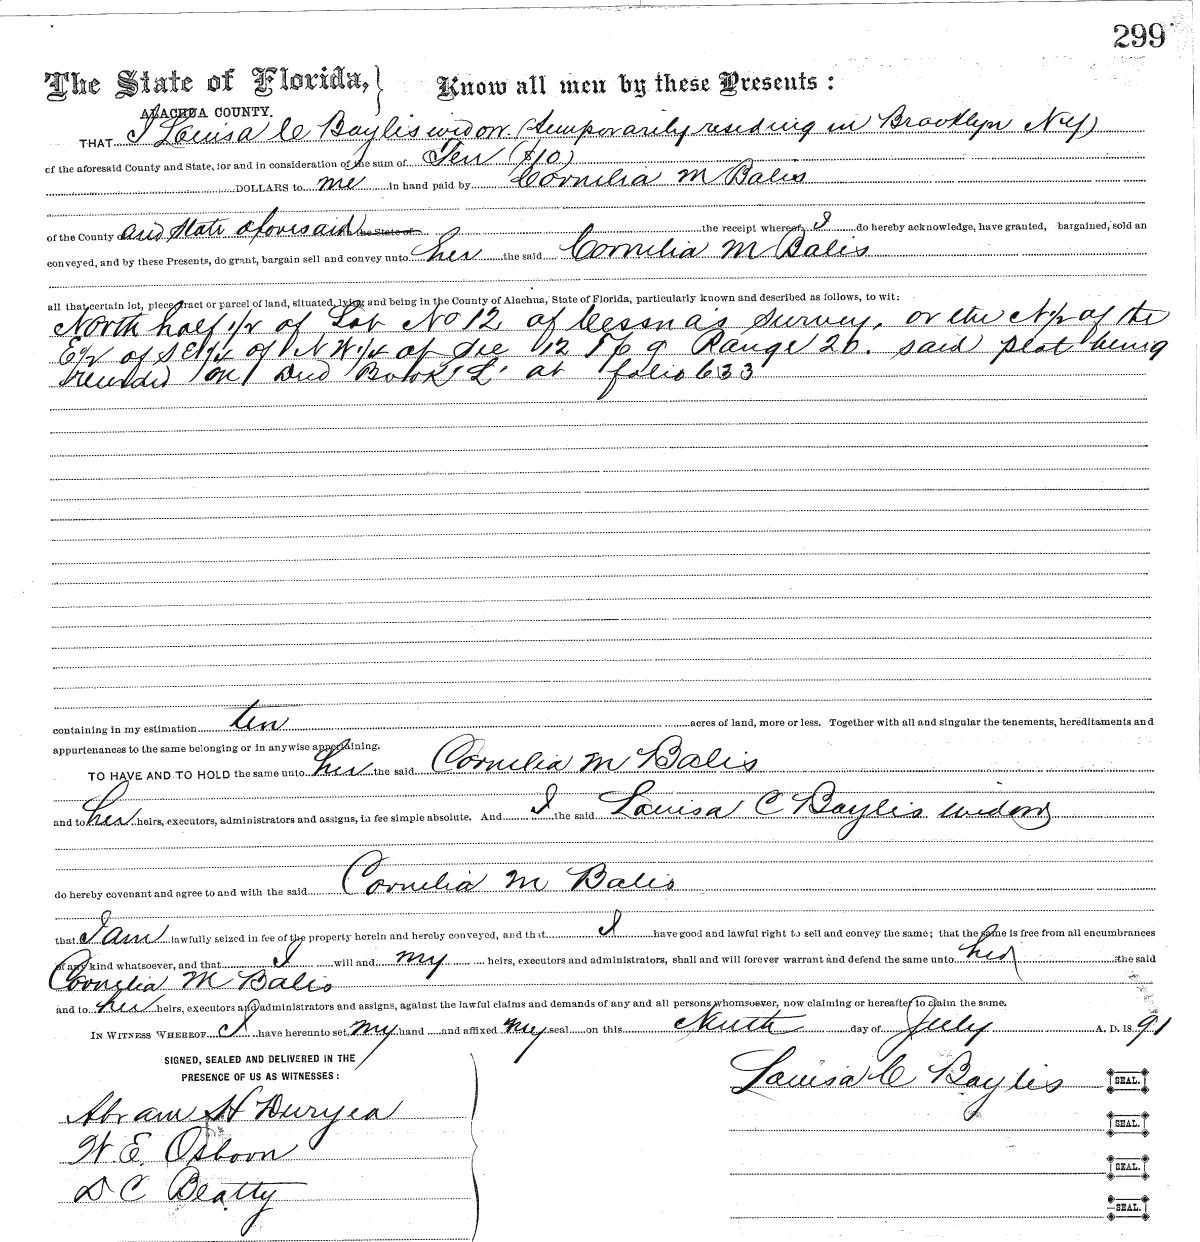 299
The State of Florida, } Know all men by these Presents :
ALACHUA COUNTY.
THAT I Louisa C Baylis widow (temporarily residing in Brooklyn N.Y)
of the aforesaid County and State, for and in consideration of the sum of Ten ($10)
DOLLARS to me in hand paid by Cornelia M Balis
of the County and State aforesaid in the State of the receipt whereof I do hereby acknowledge, have granted, bargained, sold an
conveyed, and by these Presents, do grant, bargain sell and convey unto her the said Cornelia M Balis
all that certain lot, piece tract or parcel of land, situated, lying and being in the County of Alachua, State of Florida, particularly known and described as follows, to wit:
North half 1/2 of Lot No 12 of Cessna's Survey, or the N 1/2 of the
E 1/2 of S E 1/4 of N W 1/4 of Sec 12 Tp 9 Range 20. said plot being
recorded on Deed Book "L" at folio 633
containing in my estimation ten acres of land, more or less. Together with all and singular the tenements, hereditaments and
appurtenances to the same belonging or in anywise appertaining.
TO HAVE AND TO HOLD the same unto her the said Cornelia M Balis
and to her heirs, executors, administrators and assigns, in fee simple absolute. And I the said Louisa C Baylis widow
do hereby covenant and agree to and with the said Cornelia M Balis
that I am lawfully seized in fee of the property herein and hereby conveyed, and that I have good and lawful right to sell and convey the same; that the same is free from all encumbrances
of any kind whatsoever, and that I will and my heirs, executors and administrators, shall and will forever warrant and defend the same unto her the said
Cornelia M Balis
and to her heirs, executors and administrators and assigns, against the lawful claims and demands of any and all persons whomsoever, now claiming or hereafter to claim the same.
IN WITNESS WHEREOF I have hereunto set my hand and affixed my seal on this Ninth day of July A. D. 18 91
SIGNED, SEALED AND DELIVERED IN THE
PRESENCE OF US AS WITNESSES :
Louisa C Baylis SEAL.
Abram H Duryea
SEAL.
W. E. Osborn
SEAL.
D C Beatty
SEAL.